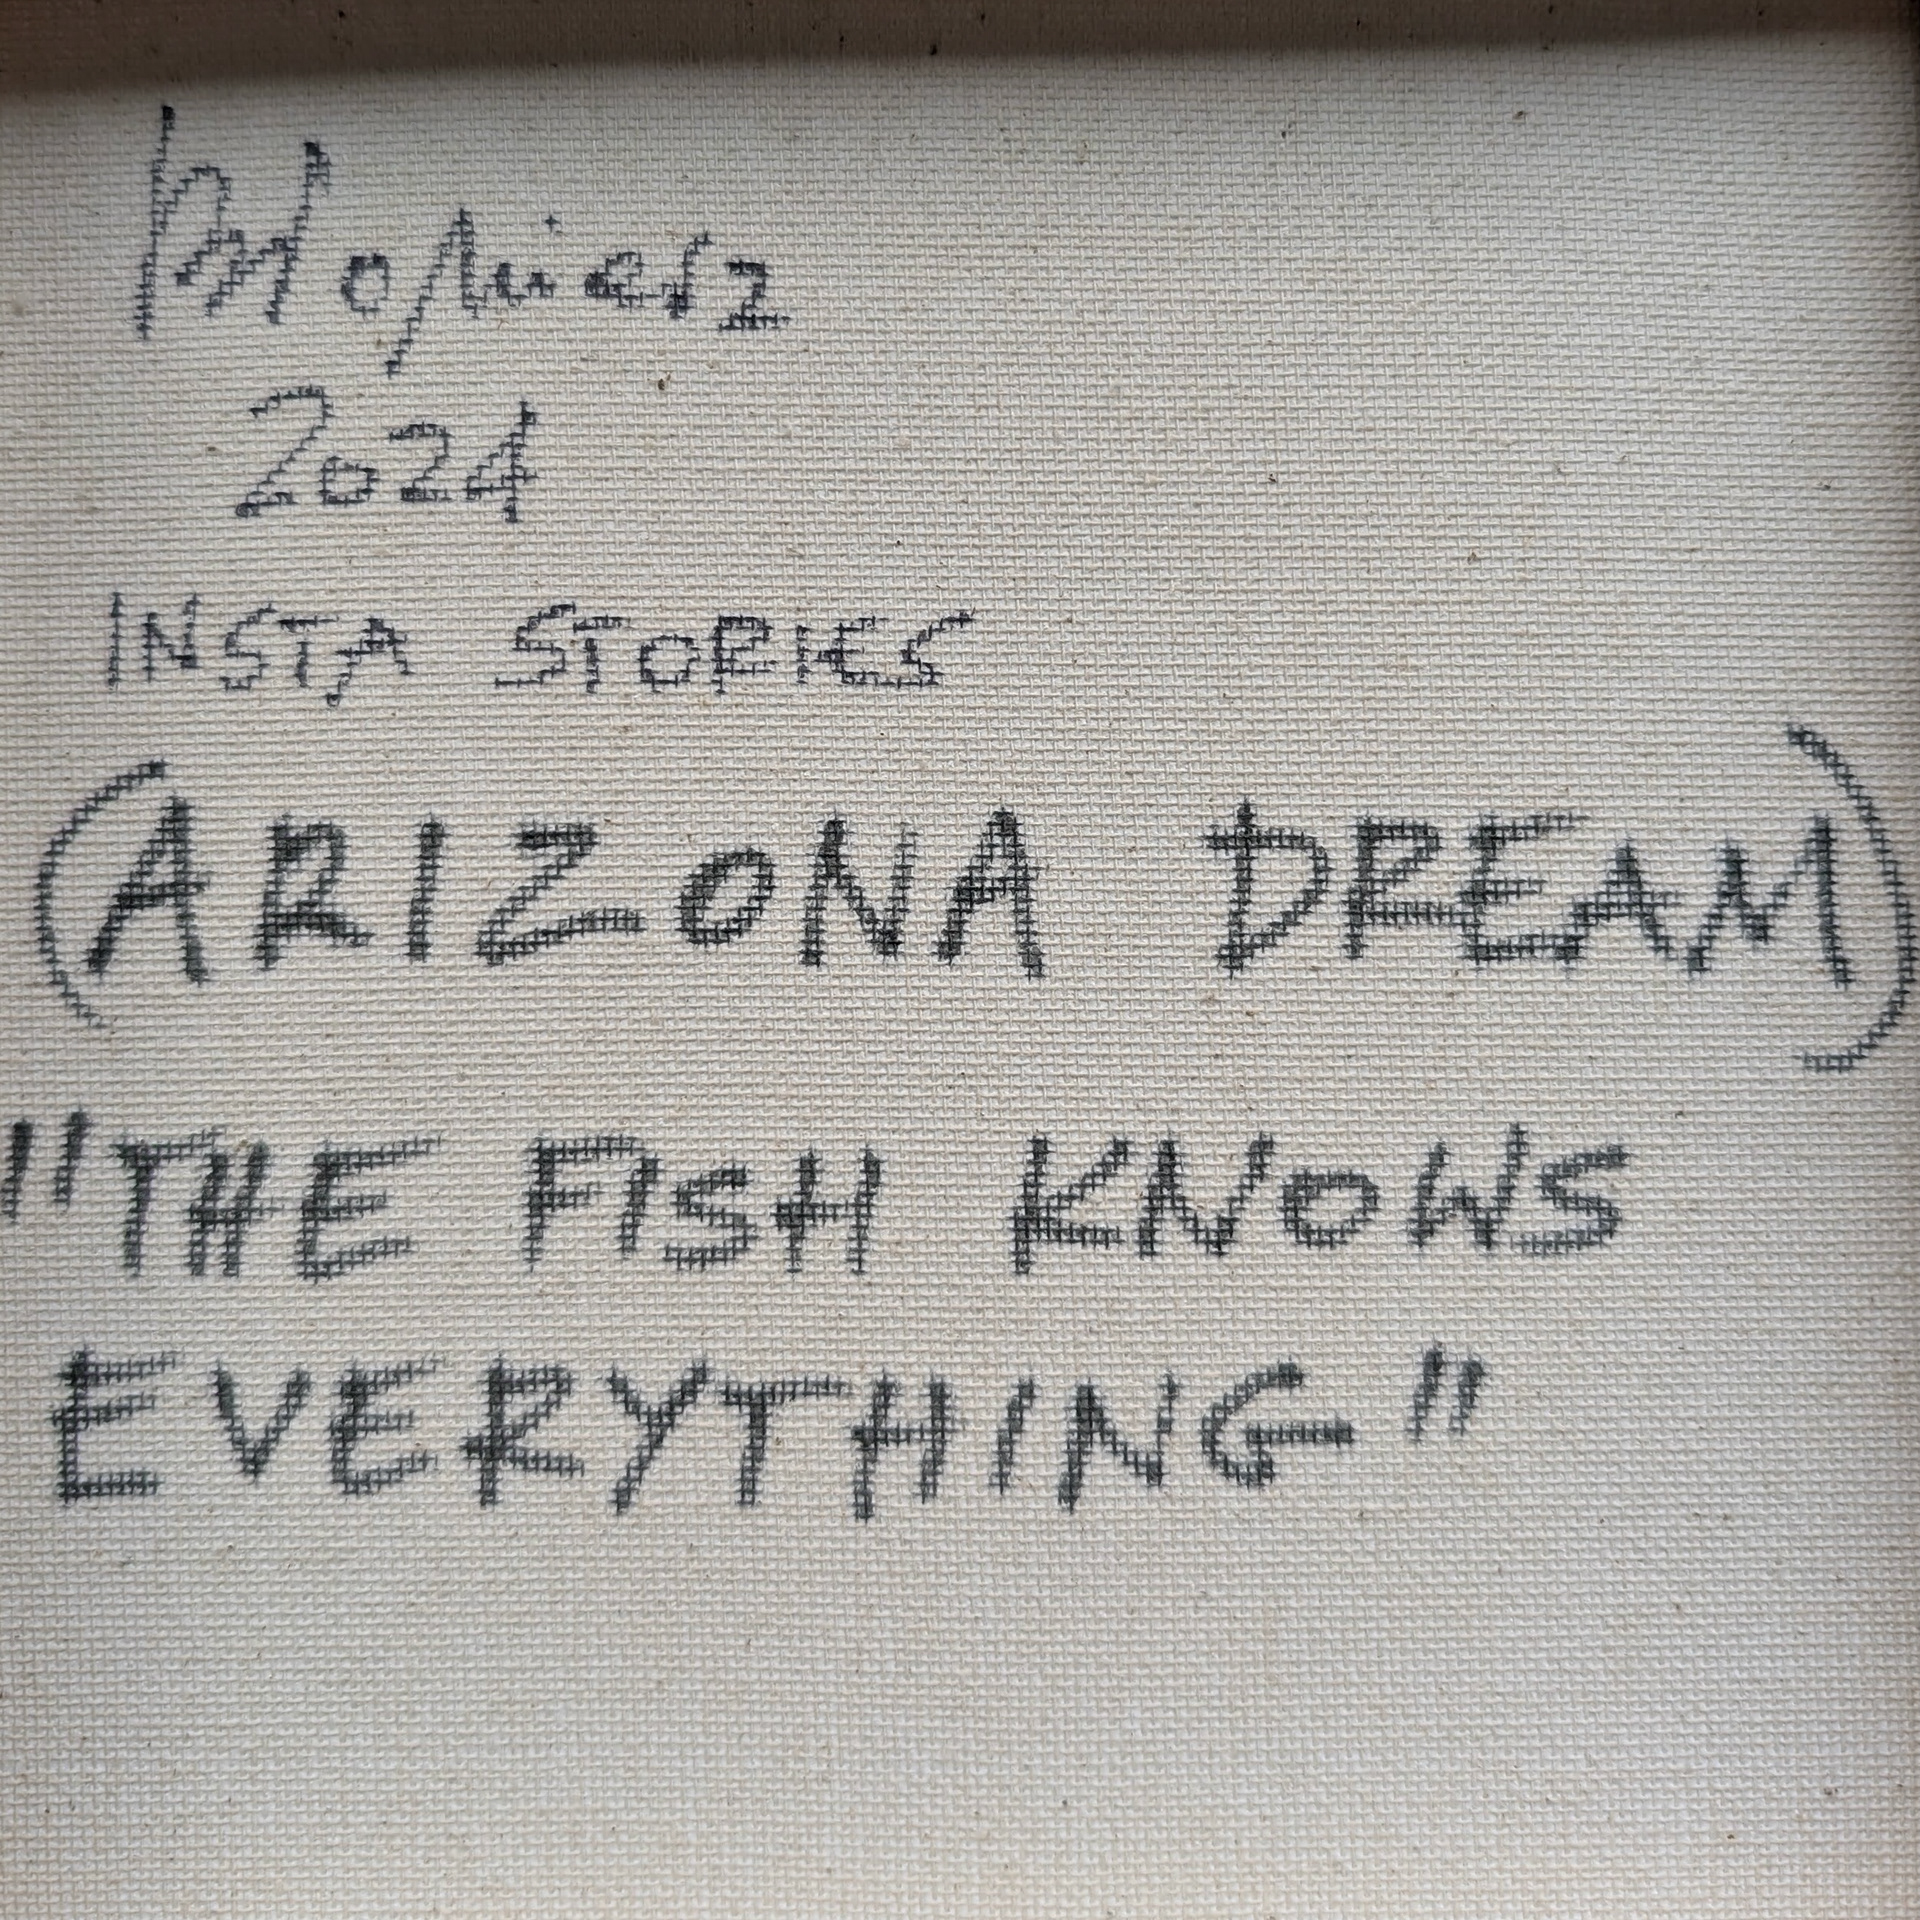 2024
INSTA STORIES
(ARIZONA DREAM)
"THE FISH KNOWS
EVERYTHING"